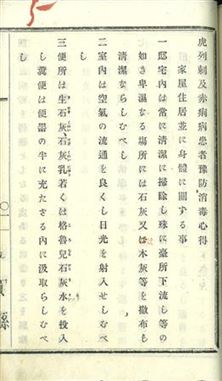 虎列刺及赤痢病患者豫防消毒心得
家屋住居並に身體に關する事
一邸宅内は常に淸潔に掃除し殊に臺所下流し等の
如き卑濕なる場所には石灰又は木灰等を撒布も
淸潔ならしむべし
二室内は空氣の流通を良くし日光を射入せしむべ
し
三便所は生石灰石灰乳若くは格魯兒石灰水を投入
し糞便は便器の半に充たさる内に汲取らしむべ
し